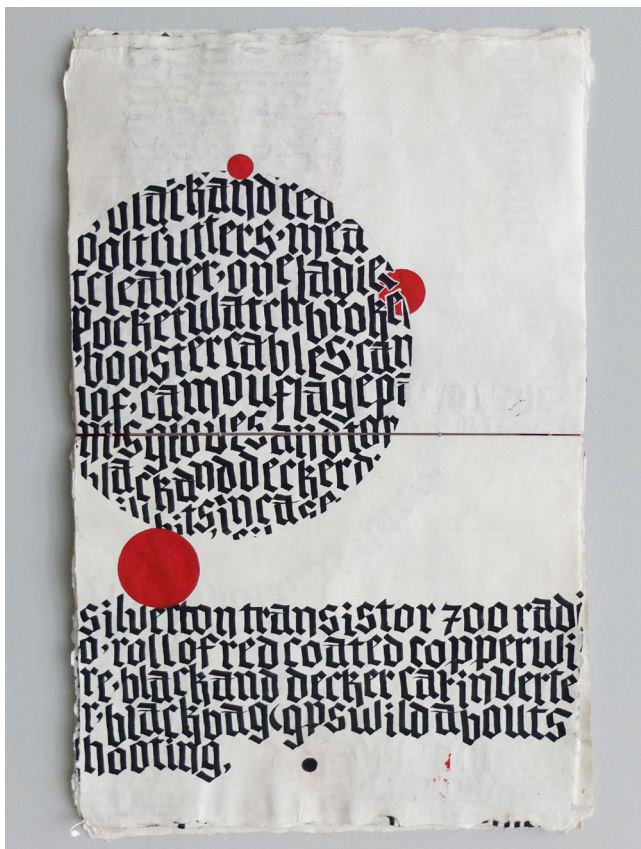 blackandred
o'boltcutters,mea
tcleaver,oneladies
pocketwatchbroke
'boostercables,can
lof,camouflagepa
ntsglovesandtop
blackanddecker
bitsincase
silvertontransistor 700 radi
o'rollofredcoatedcopperwi
re,blackand decker Carinverte
r'blackbag(gpswildabouts
hooting,